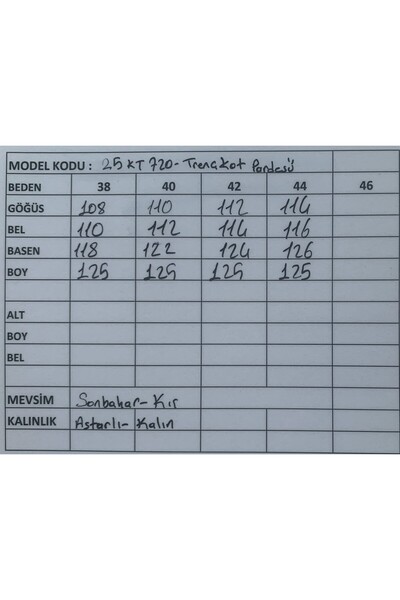 MODEL KODU : 25 KT 720 - Trençkot Pardesü
BEDEN 38 40 42 44 46
GÖĞÜS 108 110 112 114
BEL 110 112 114 116
BASEN 118 122 124 126
BOY 125 125 125 125
ALT
BOY
BEL
MEVSİM Sonbahar - Kış
KALINLIK Astarlı - Kalın